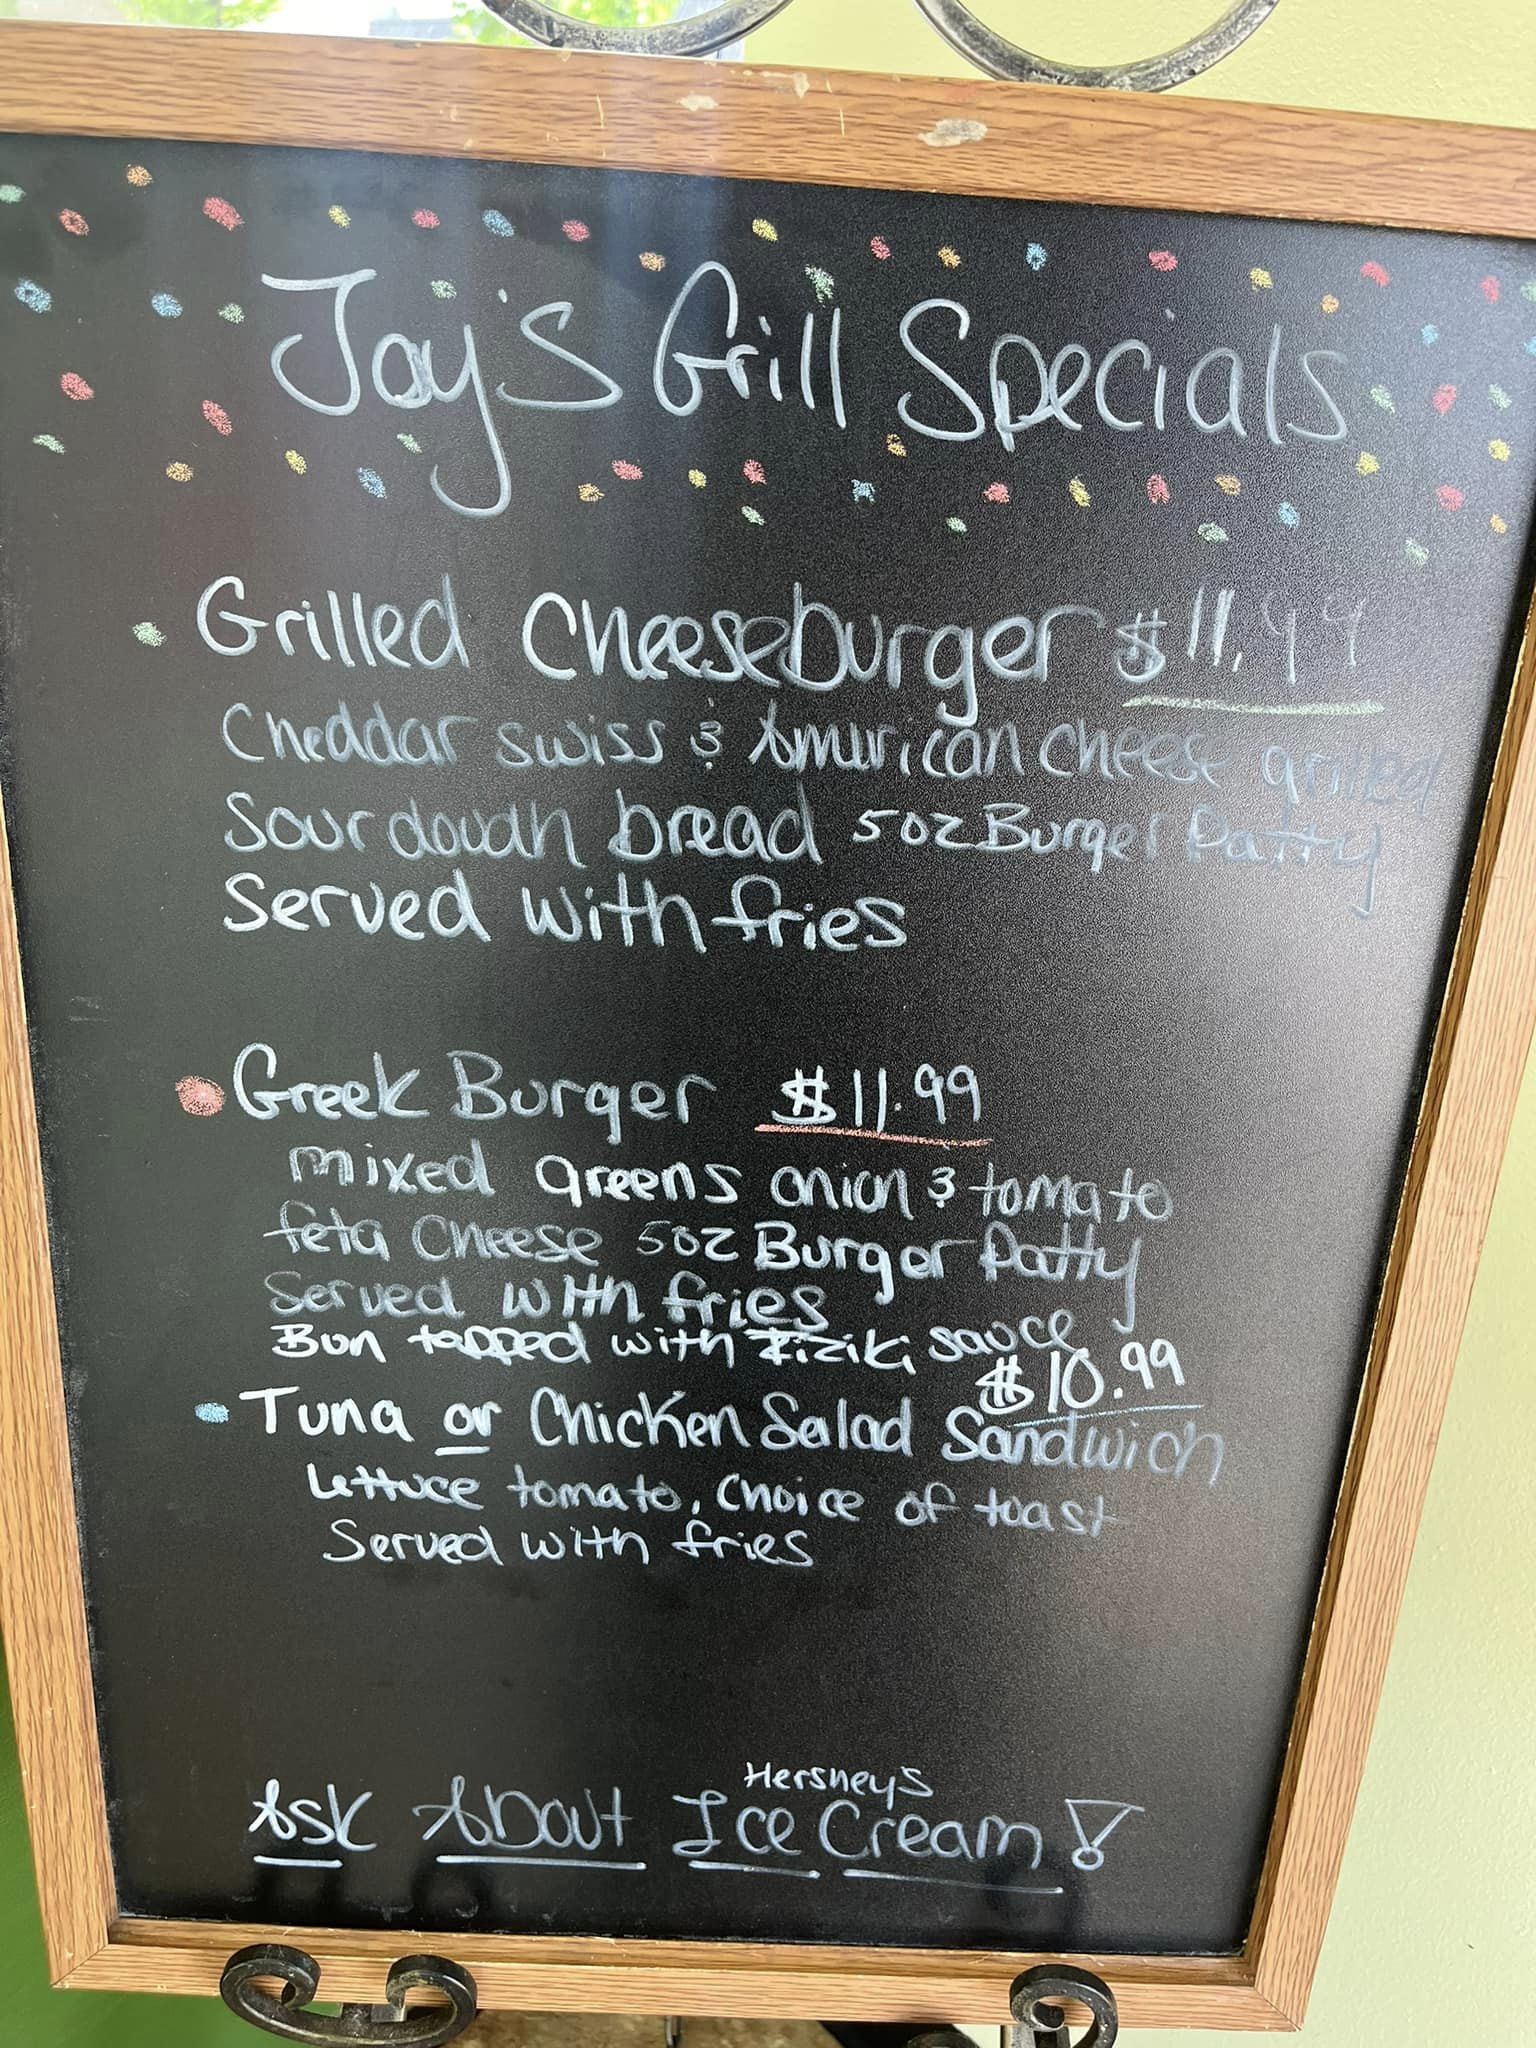 Jay's Grill Specials
Grilled Cheeseburger $11.99
Cheddar swiss & American cheese grilled
Sourdough bread 5oz Burger Patty
Served with fries
Greek Burger $11.99
mixed greens onion & tomato
feta cheese 5oz Burger Patty
Served with fries
Bun topped with Ziziki sauce
$10.99
Tuna or Chicken Salad Sandwich
Lettuce tomato, Choice of toast
Served with fries
Hersheys
Ask About Ice Cream!